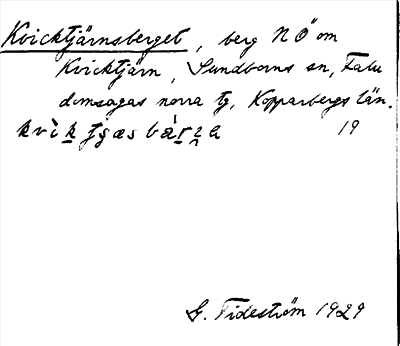 Kvicktjärnsberget, berg N Ö om
Kvicktjärn, Sundborns sn, Falu
domsagas norra tg, Kopparbergs län.
19
G. Tideström 1929